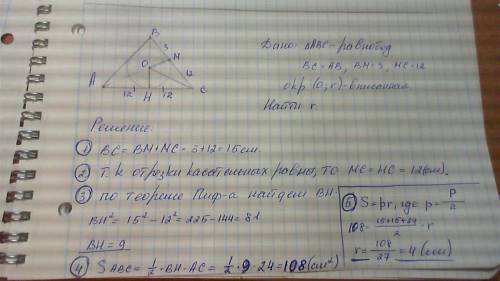 B
3
N
O
12
A
12
H
12
C
Дано: △ABC-равнобед
BC=AB, BN=3, NC=12
окр (O;r)-вписанная
Найти r.
Решение.
① BC= BN+NC= 3+12=15см.
② т.к отрезки касательных равны, то NC=HC=12(см).
③ по теореме Пиф-а найдем BH.
BH²= 15²-12²=225-144=81
BH=9
④ S ABC= 1/2 · BH · AC= 1/2 · 9 · 24=108(см²)
⑤ S=pr, где p= P/2
108= 15+15+24/2 · r
r= 108/27 =4(см)